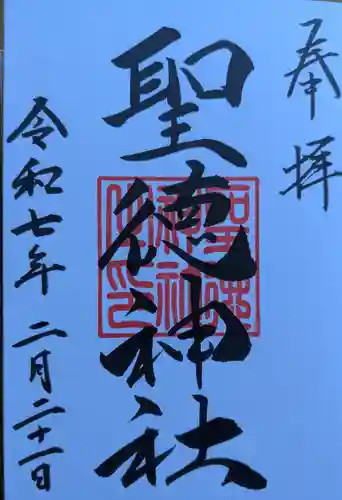 奉拝
聖徳神社
令和七年二月二十一日